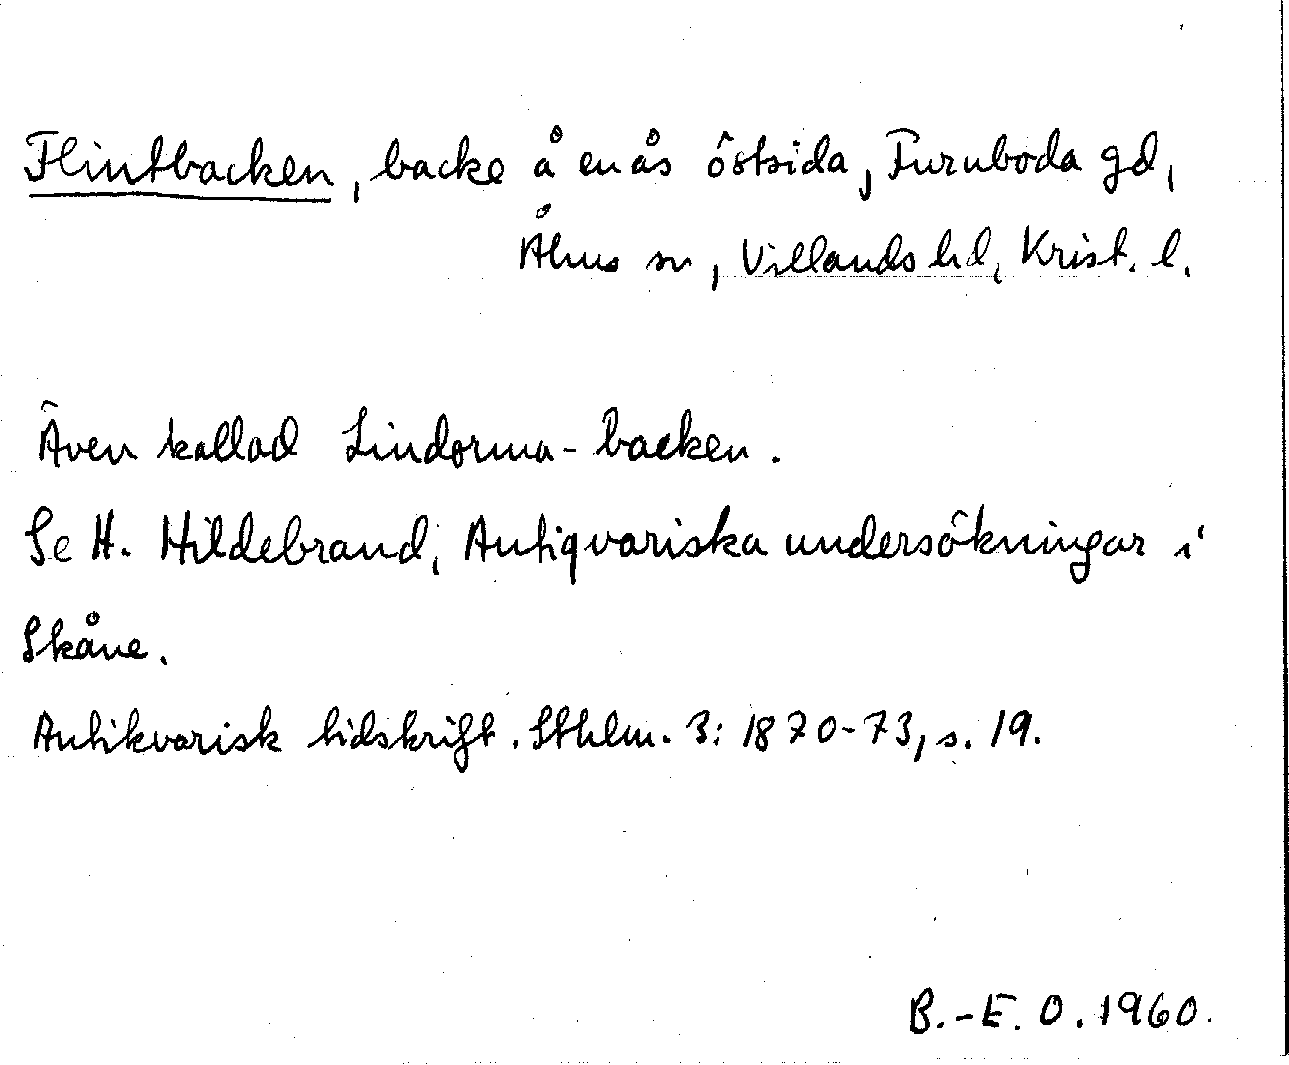 Flintbacken, backe å en ås östsida, Furuboda gd,
Åhus sn, Villands hd, Krist. l.
Även kallad Lindorma-backen.
Se H. Hildebrand, Antiqvariska undersökningar i
Skåne.
Antikvarisk tidskrift. Sthlm. 3: 1870-73, s. 19.
B.-E. O. 1960.